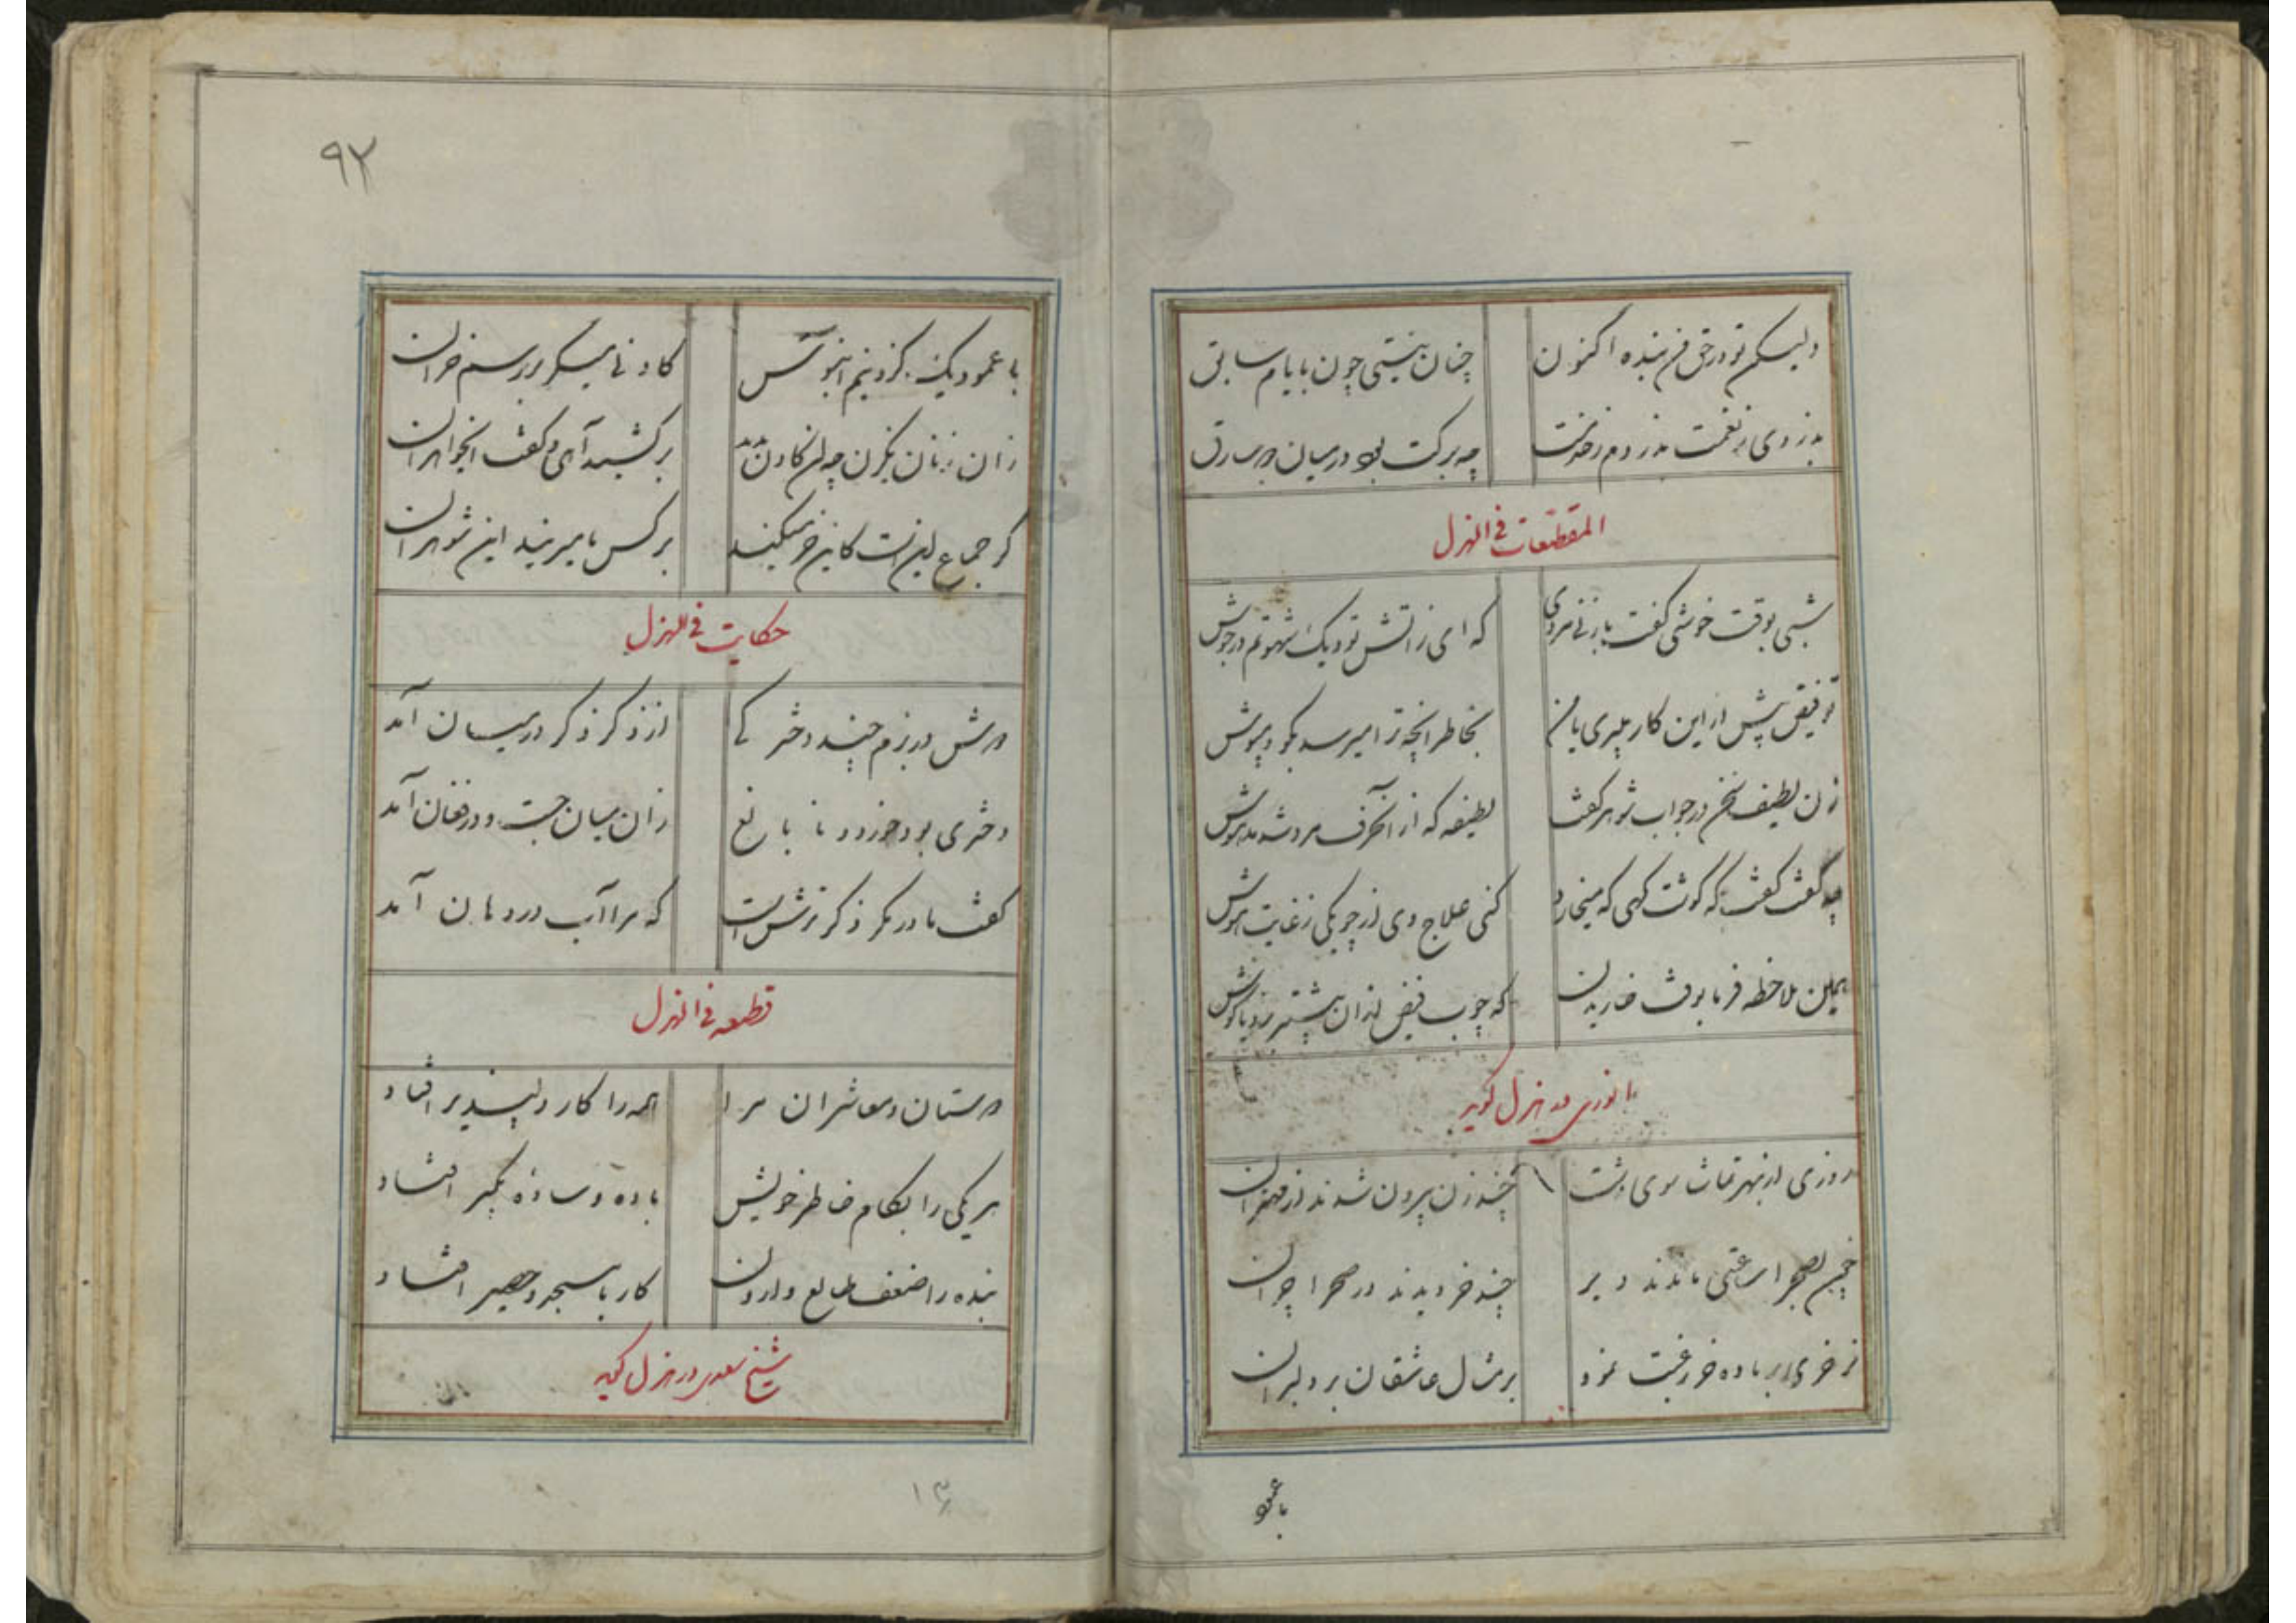 ولیکم تو در حق من بنده اکنون چنان نیستی چون بایام سابق
بدزدی ز نعمت بدزدم ز خدمت چه برکت بود در میان دو سارق
المقطعات فی الهزل
شبی بوقت خوشی گفت با زنی مردی که ای ز آتش تو دیک شهوتم در جوش
تو فیض پیش از این کار میبری یا من بخاطر آنچه ترا میرسد بگو و مپوش
زن لطیف سخن در جواب شوهر گفت لطیفه که از آنحرف مرد شد مدهوش
چه گفت گفت که گوشت گهی که میخارد کنی علاج وی از چوبکی ز غایت هوش
ببین ملاحظه فرما بوقت خاریدن که چوب فیض از آن بیشتر برد یا گوش
انوری در هزل گوید
روزی از بهر تماشا سوی دشت چند زن بیرون شدند از مهتران
چون بصحرا ساعتی ماندند دیر چند خر دیدند در صحرا چران
نر خری بر ماده خر رغبت نمود بر مثال عاشقان بر دلبران
با عمود
۹۲
با عمودی یک گز و نیم آبنوس گاد نی میکرد بر رسم خران
زان زنان یک زن چو آن گادن بدید برکشید آهی و گفت ایخواهران
گر جماع اینست کاین خر میکند بر کس ما میریند این شوهران
حکایت فی الهزل
دوش در بزم چند دختر کی از ذکر ذکر در میان آمد
دختری بود خورد و نا بالغ زان میان جست و در فغان آمد
گفت مادر مگر ذکر ترش است که مرا آب در دهان آمد
قطعه فی الهزل
دوستان و معاشران مرا همه را کار دلپذیر افتاد
هر یکی را بکام خاطر خویش باده و ساده بگیر افتاد
بنده را ضعف طالع وارون کار با مسجد و حصیر افتاد
شیخ سعدی در هزل گوید